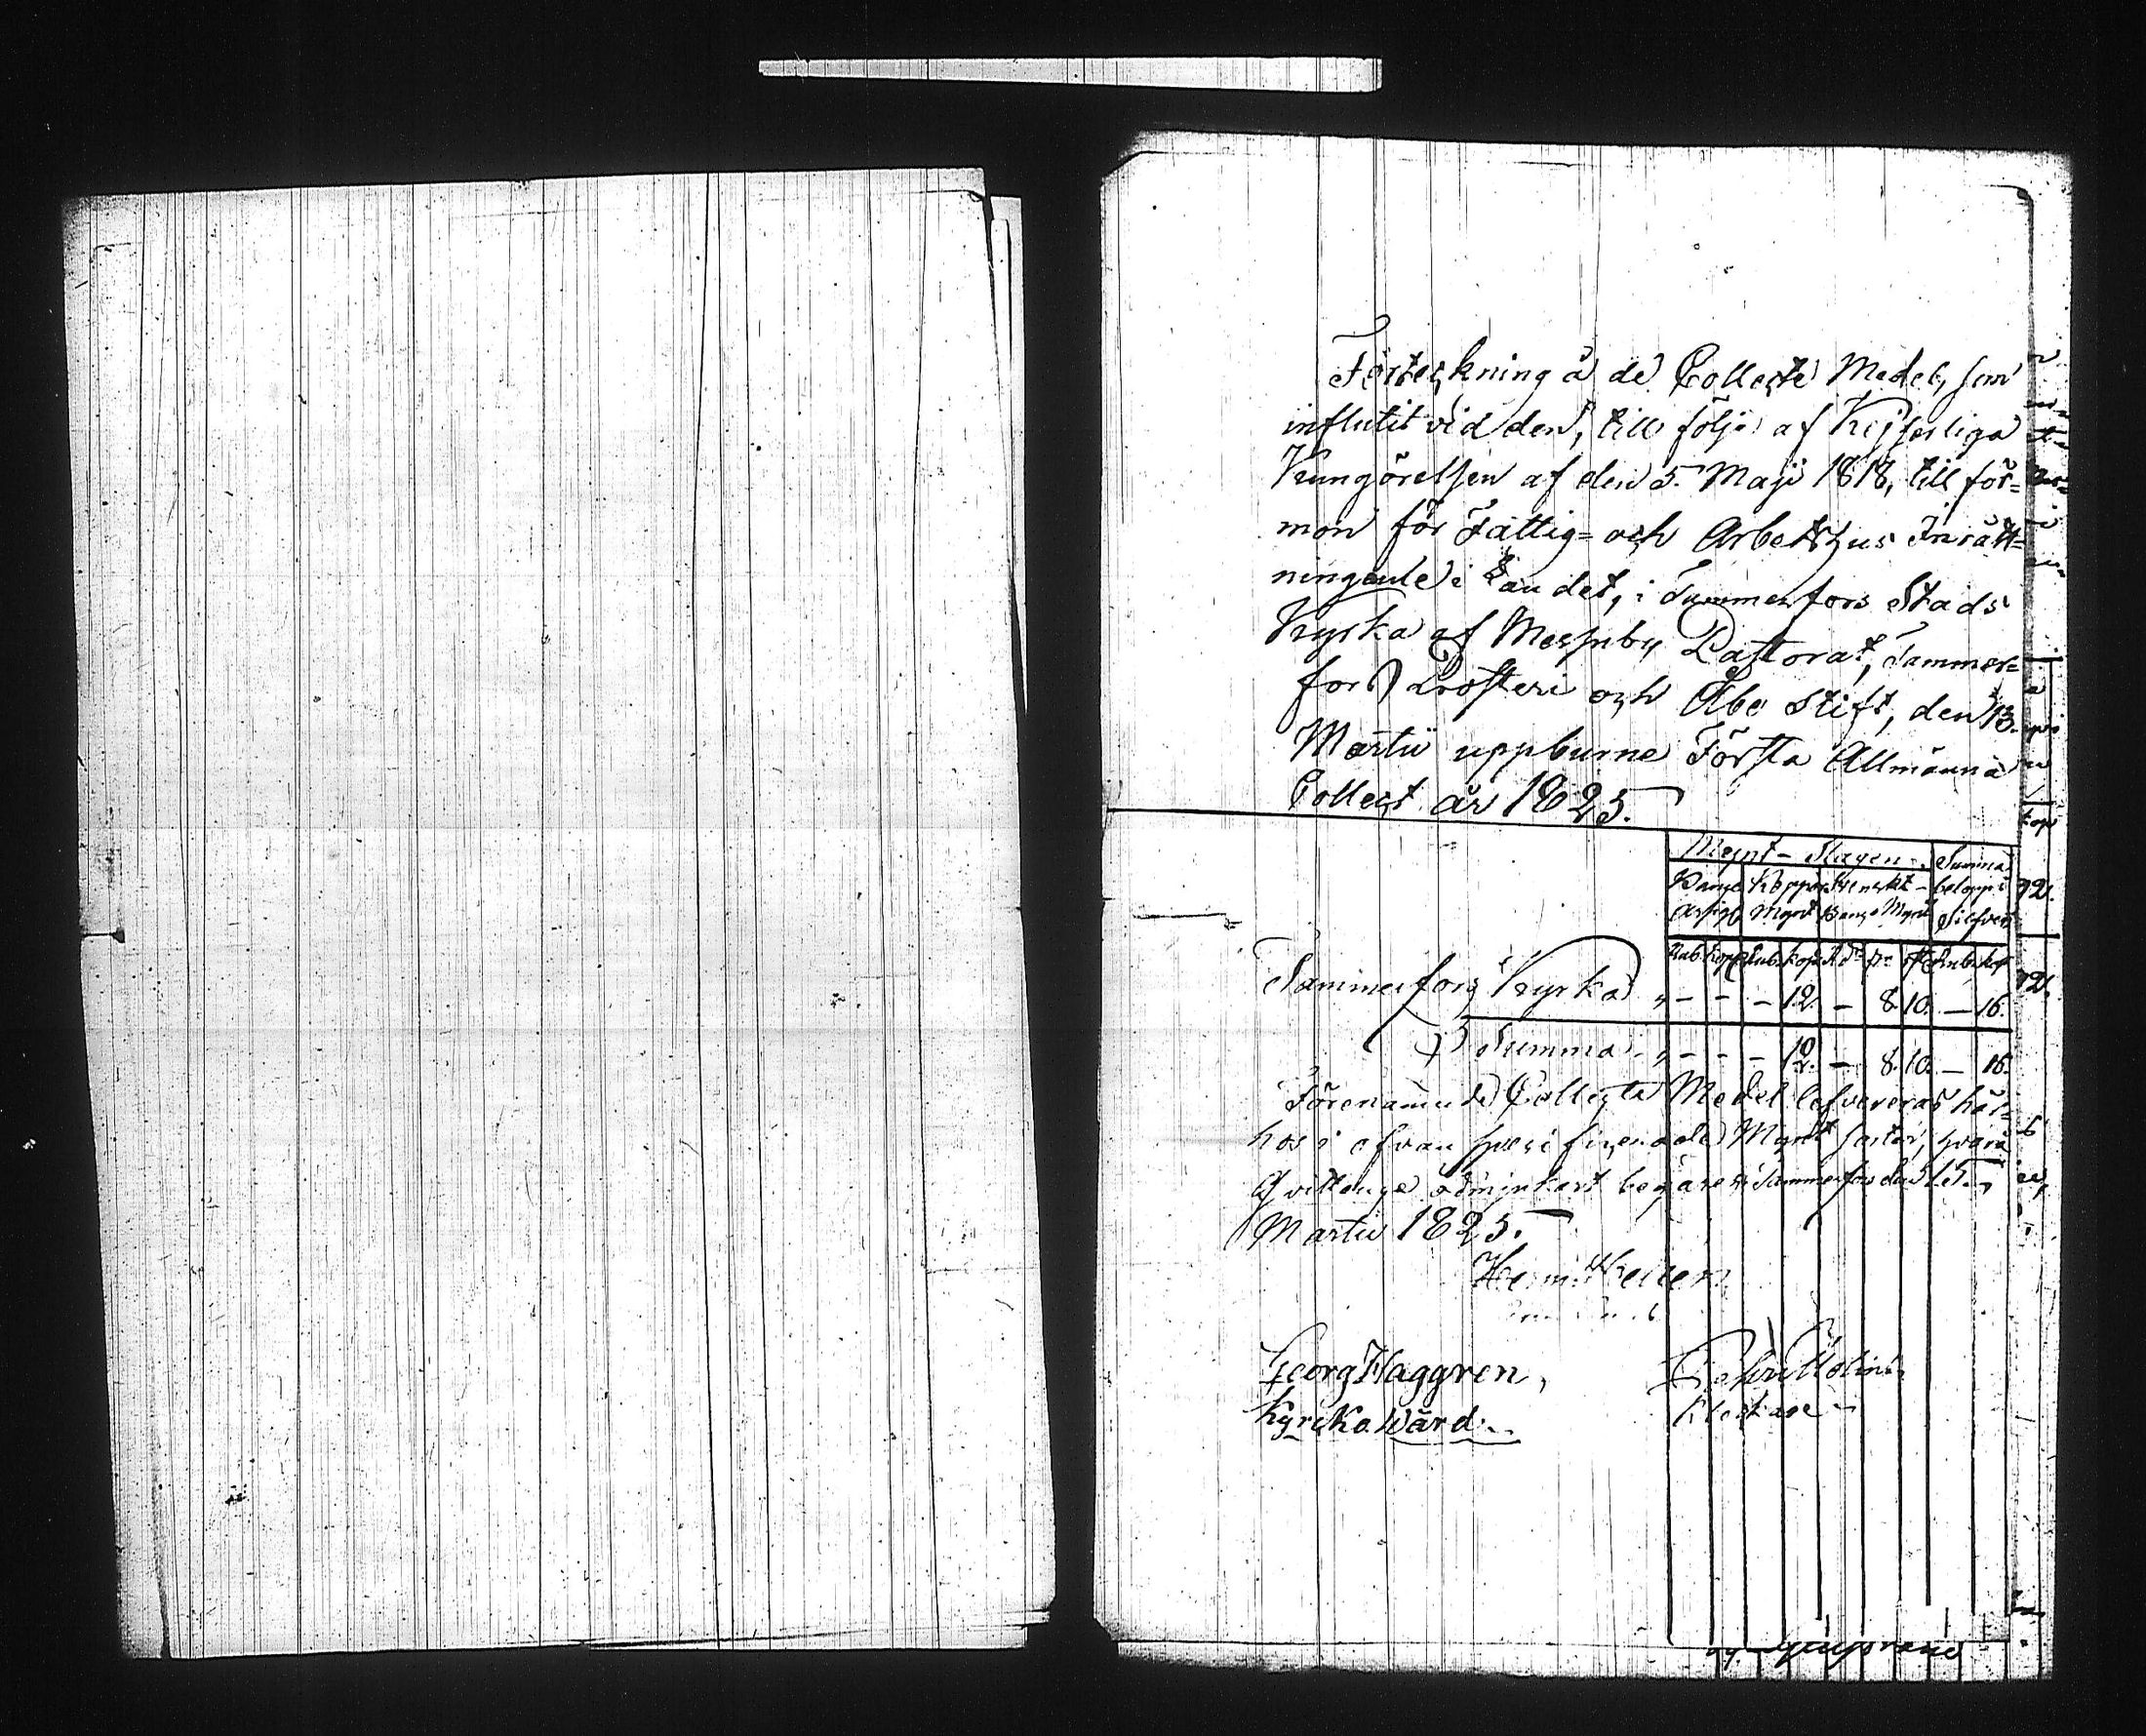 Förteckning å de Collecte Medel, som
influtit vid den, till följe af Kejserliga
Kungörelsen af den 5. Maji 1818, till för=
mon för Fattig= och Arbetshus Inrätt=
ningarne i Landet, i Tammerfors Stads
Kyrka af Messuby Pastorat, Tammer=
fors Prosteri och Åbo Stift, den 13.
Martii uppburne Första Allmänna
Collect år 1825.
Mynt-Slagen. Summa
Banco Koppar Svenskt beloppi
Assign Mynt Banco Mynt Silfver
Rub. Kop. Rub. Kop. Rd. sk. rst. Rub. Kop.
Tammerfors Kyrka „ - - - 12. - 8. 10. - 16.
Summa „ - - - 12. - 8. 10. - 16.
Förenämnde Collecta Medel lefvereras här=
hos i ofvan specificerade Mynt sorter, hvarå
qvittence ödmjukast begäres. Tammerfors den 15.
Martii 1825.
Georg Haggren,
Kyrko Wärd.
Klockare